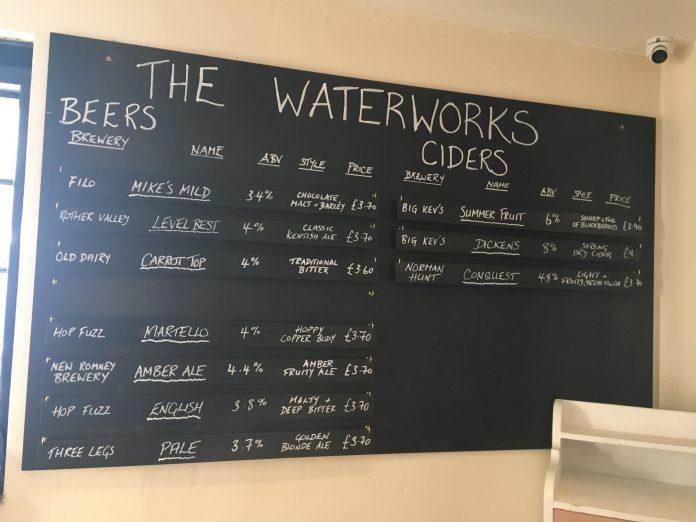 THE WATERWORKS
BEERS
BREWERY NAME ABV STYLE PRICE
FILO MIKE'S MILD 3.4% CHOCOLATE MALT + BARLEY £3.70
ROTHER VALLEY LEVEL BEST 4% CLASSIC KENTISH ALE £3.70
OLD DAIRY CARROT TOP 4% TRADITIONAL BITTER £3.60
HOP FUZZ MARTELLO 4% HOPPY COPPER BODY £3.70
NEW ROMNEY BREWERY AMBER ALE 4.4% AMBER FRUITY ALE £3.70
HOP FUZZ ENGLISH 3.8% MALTY + DEEP BITTER £3.70
THREE LEGS PALE 3.7% GOLDEN BLONDE ALE £3.70
CIDERS
BREWERY NAME ABV STYLE PRICE
BIG KEV'S SUMMER FRUIT 6% SHARP + FULL OF BLACKBERRIES £3.90
BIG KEV'S DICKENS 8% STRONG DRY CIDER £4
NORMAN HUNT CONQUEST 4.8% LIGHT + FRUITY, FRESH £3.70